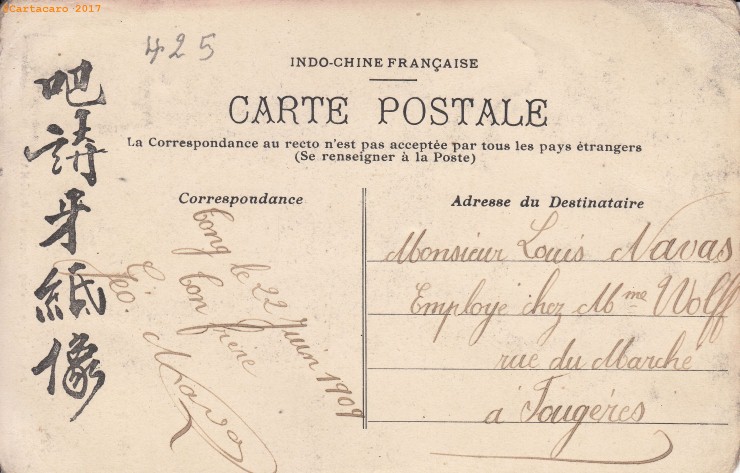 ©Cartacaro 2017
425
INDO-CHINE FRANÇAISE
CARTE POSTALE
La Correspondance au recto n'est pas acceptée par tous les pays étrangers
(Se renseigner à la Poste)
吧請牙紙像
Correspondance
Tong le 22 Juin 1909
ton frère
Geo. Nava
Adresse du Destinataire
Monsieur Louis Navas
Employe chez Mme Wolff
rue du Marche
a Fougères